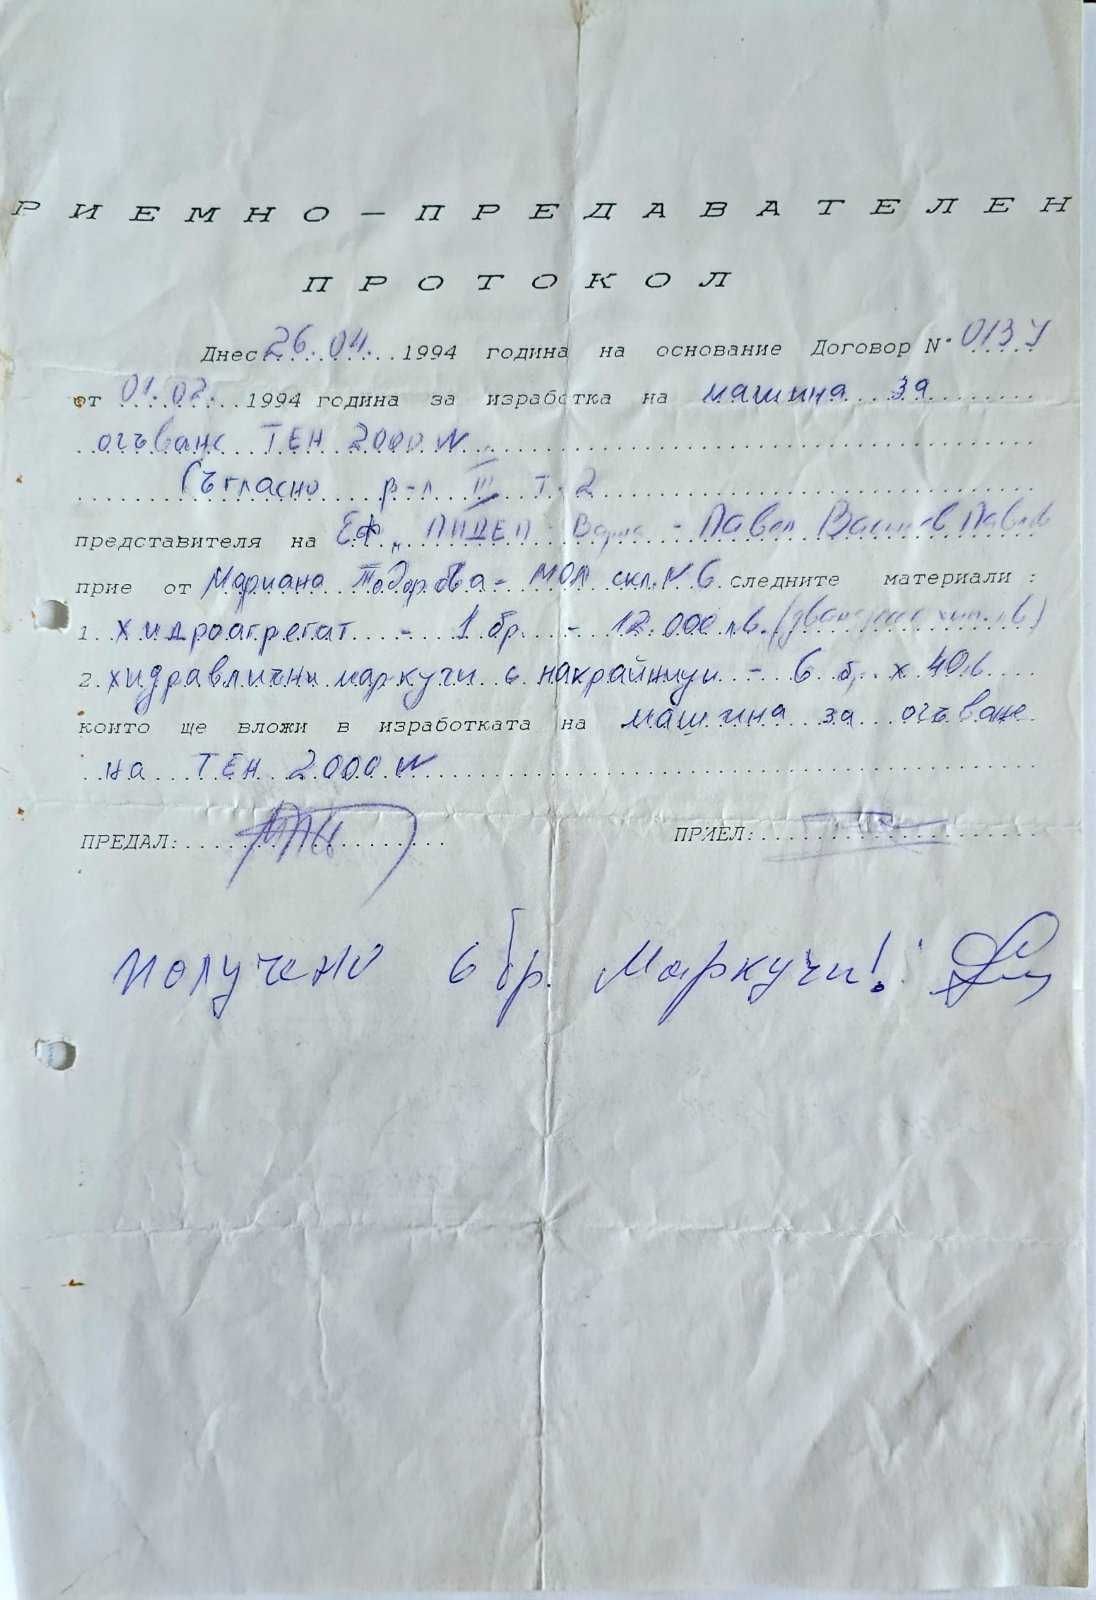 РИЕМНО-ПРЕДАВАТЕЛЕН
ПРОТОКОЛ
Днес 26.04. 1994 година на основание Договор N
от 01.02. 1994 година за изработка на машина за
огъване ТЕН 2000 W
Съгласно р-л III т. 2
представителя на ЕФ Варна - Павел Павлов
прие от Мариана Тодорова - МОЛ скл. N 6 следните материали :
1. хидроагрегат - 1 бр. - 12.000 лв.
2. хидравлични маркучи с накрайници - 6 б. х
които ще вложи в изработката на машина за огъване
на ТЕН 2000 W
ПРЕДАЛ: ПРИЕЛ:
Получено 6 бр. Маркучи!